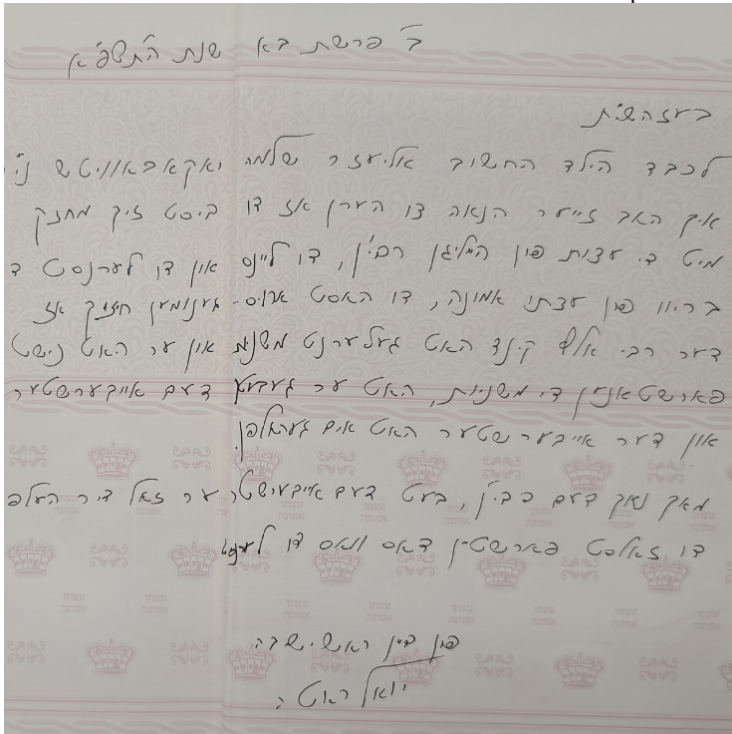 ב' פרשת בא שנת ה'תשפ"א
בעזהשי"ת
לכבד הילד החשוב אליעזר שלמה יאקאבאוויטש ני'
איך האב זייער הנאה צו הערן אז דו ביסט זיך מחזק
מיט די עצות פון הייליגן רבי'ן, דו ליינס און דו לערנסט ד
בריוו פון עצתי אמונה, דו האסט ארויס-גענומען חיזוק אז
דער רבי אלץ קינד האט געלערנט משניות און ער האט נישט
פארשטאנען די משניות, האט ער געבעטן דעם אייבערשטער
און דער אייבערשטער האט אים געהאלפן.
מאך נאך דעם רבי'ן, בעט דעם אייבערשטער ער זאל דיר העלפ
דו זאלסט פארשטיין דאס וואס דו לערנסט
פון דיין ראש ישיבה
יואל ראטה